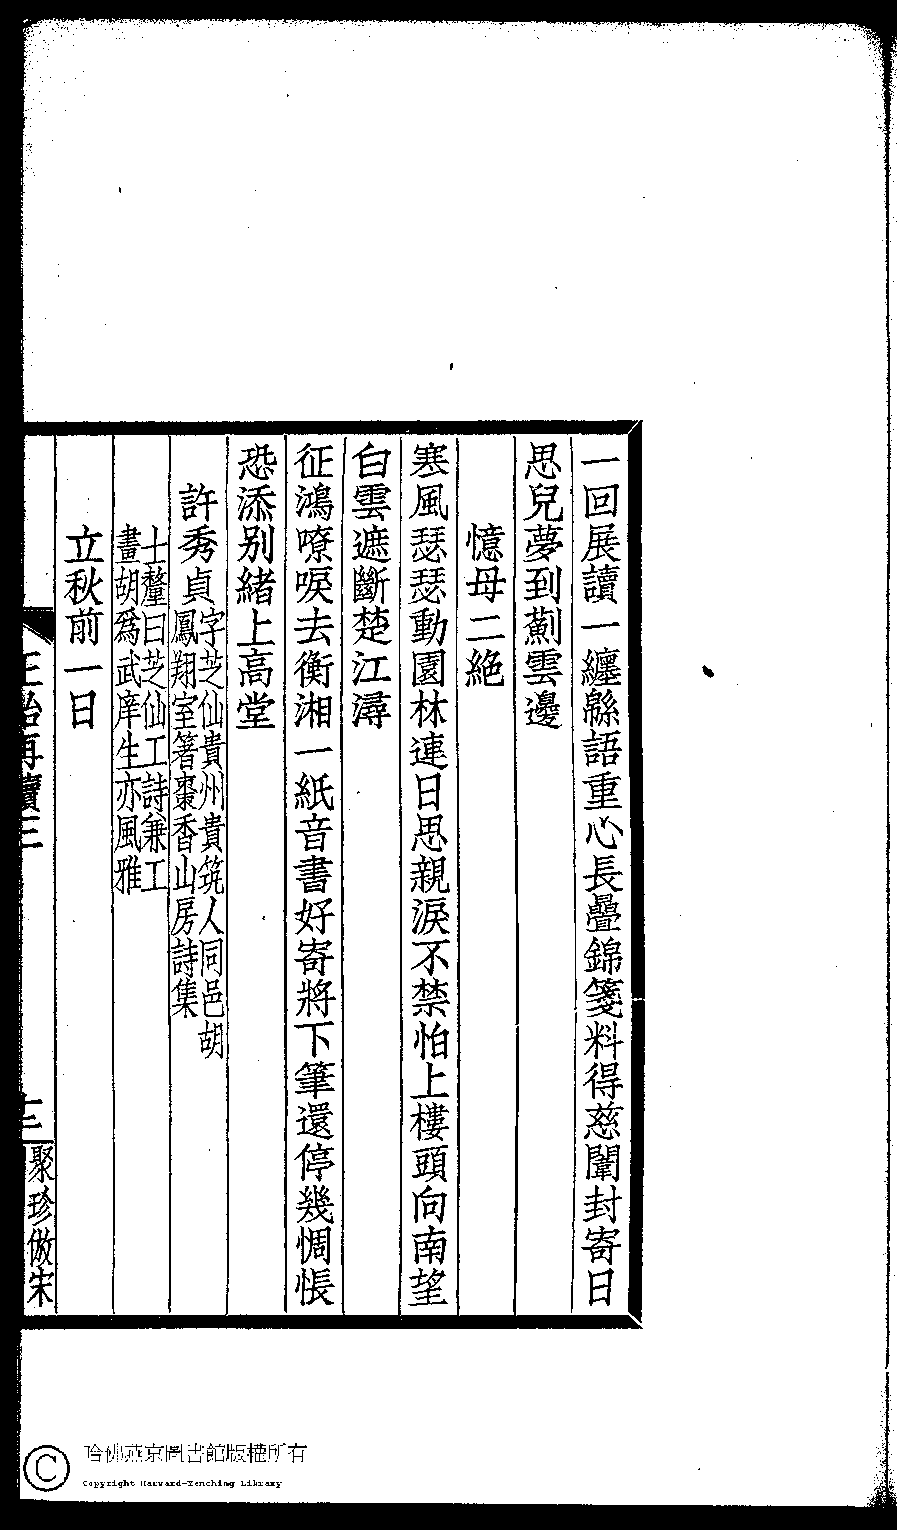 一回展讀一纏緜語重心長疊錦箋料得慈闈封寄日
思兒夢到薊雲邊
憶母二絕
寒風瑟瑟動園林連日思親淚不禁怕上樓頭向南望
白雲遮斷楚江潯
征鴻嘹唳去衡湘一紙音書好寄將下筆還停幾惆悵
恐添別緒上高堂
許秀貞字芝仙貴州貴筑人同邑胡
鳳翔室箸棗香山房詩集
士釐曰芝仙工詩兼工
畫胡爲武庠生亦風雅
立秋前一日
正始再續三
十三
聚珍倣宋
哈佛燕京圖書館版權所有
Copyright Harvard-Yenching Library